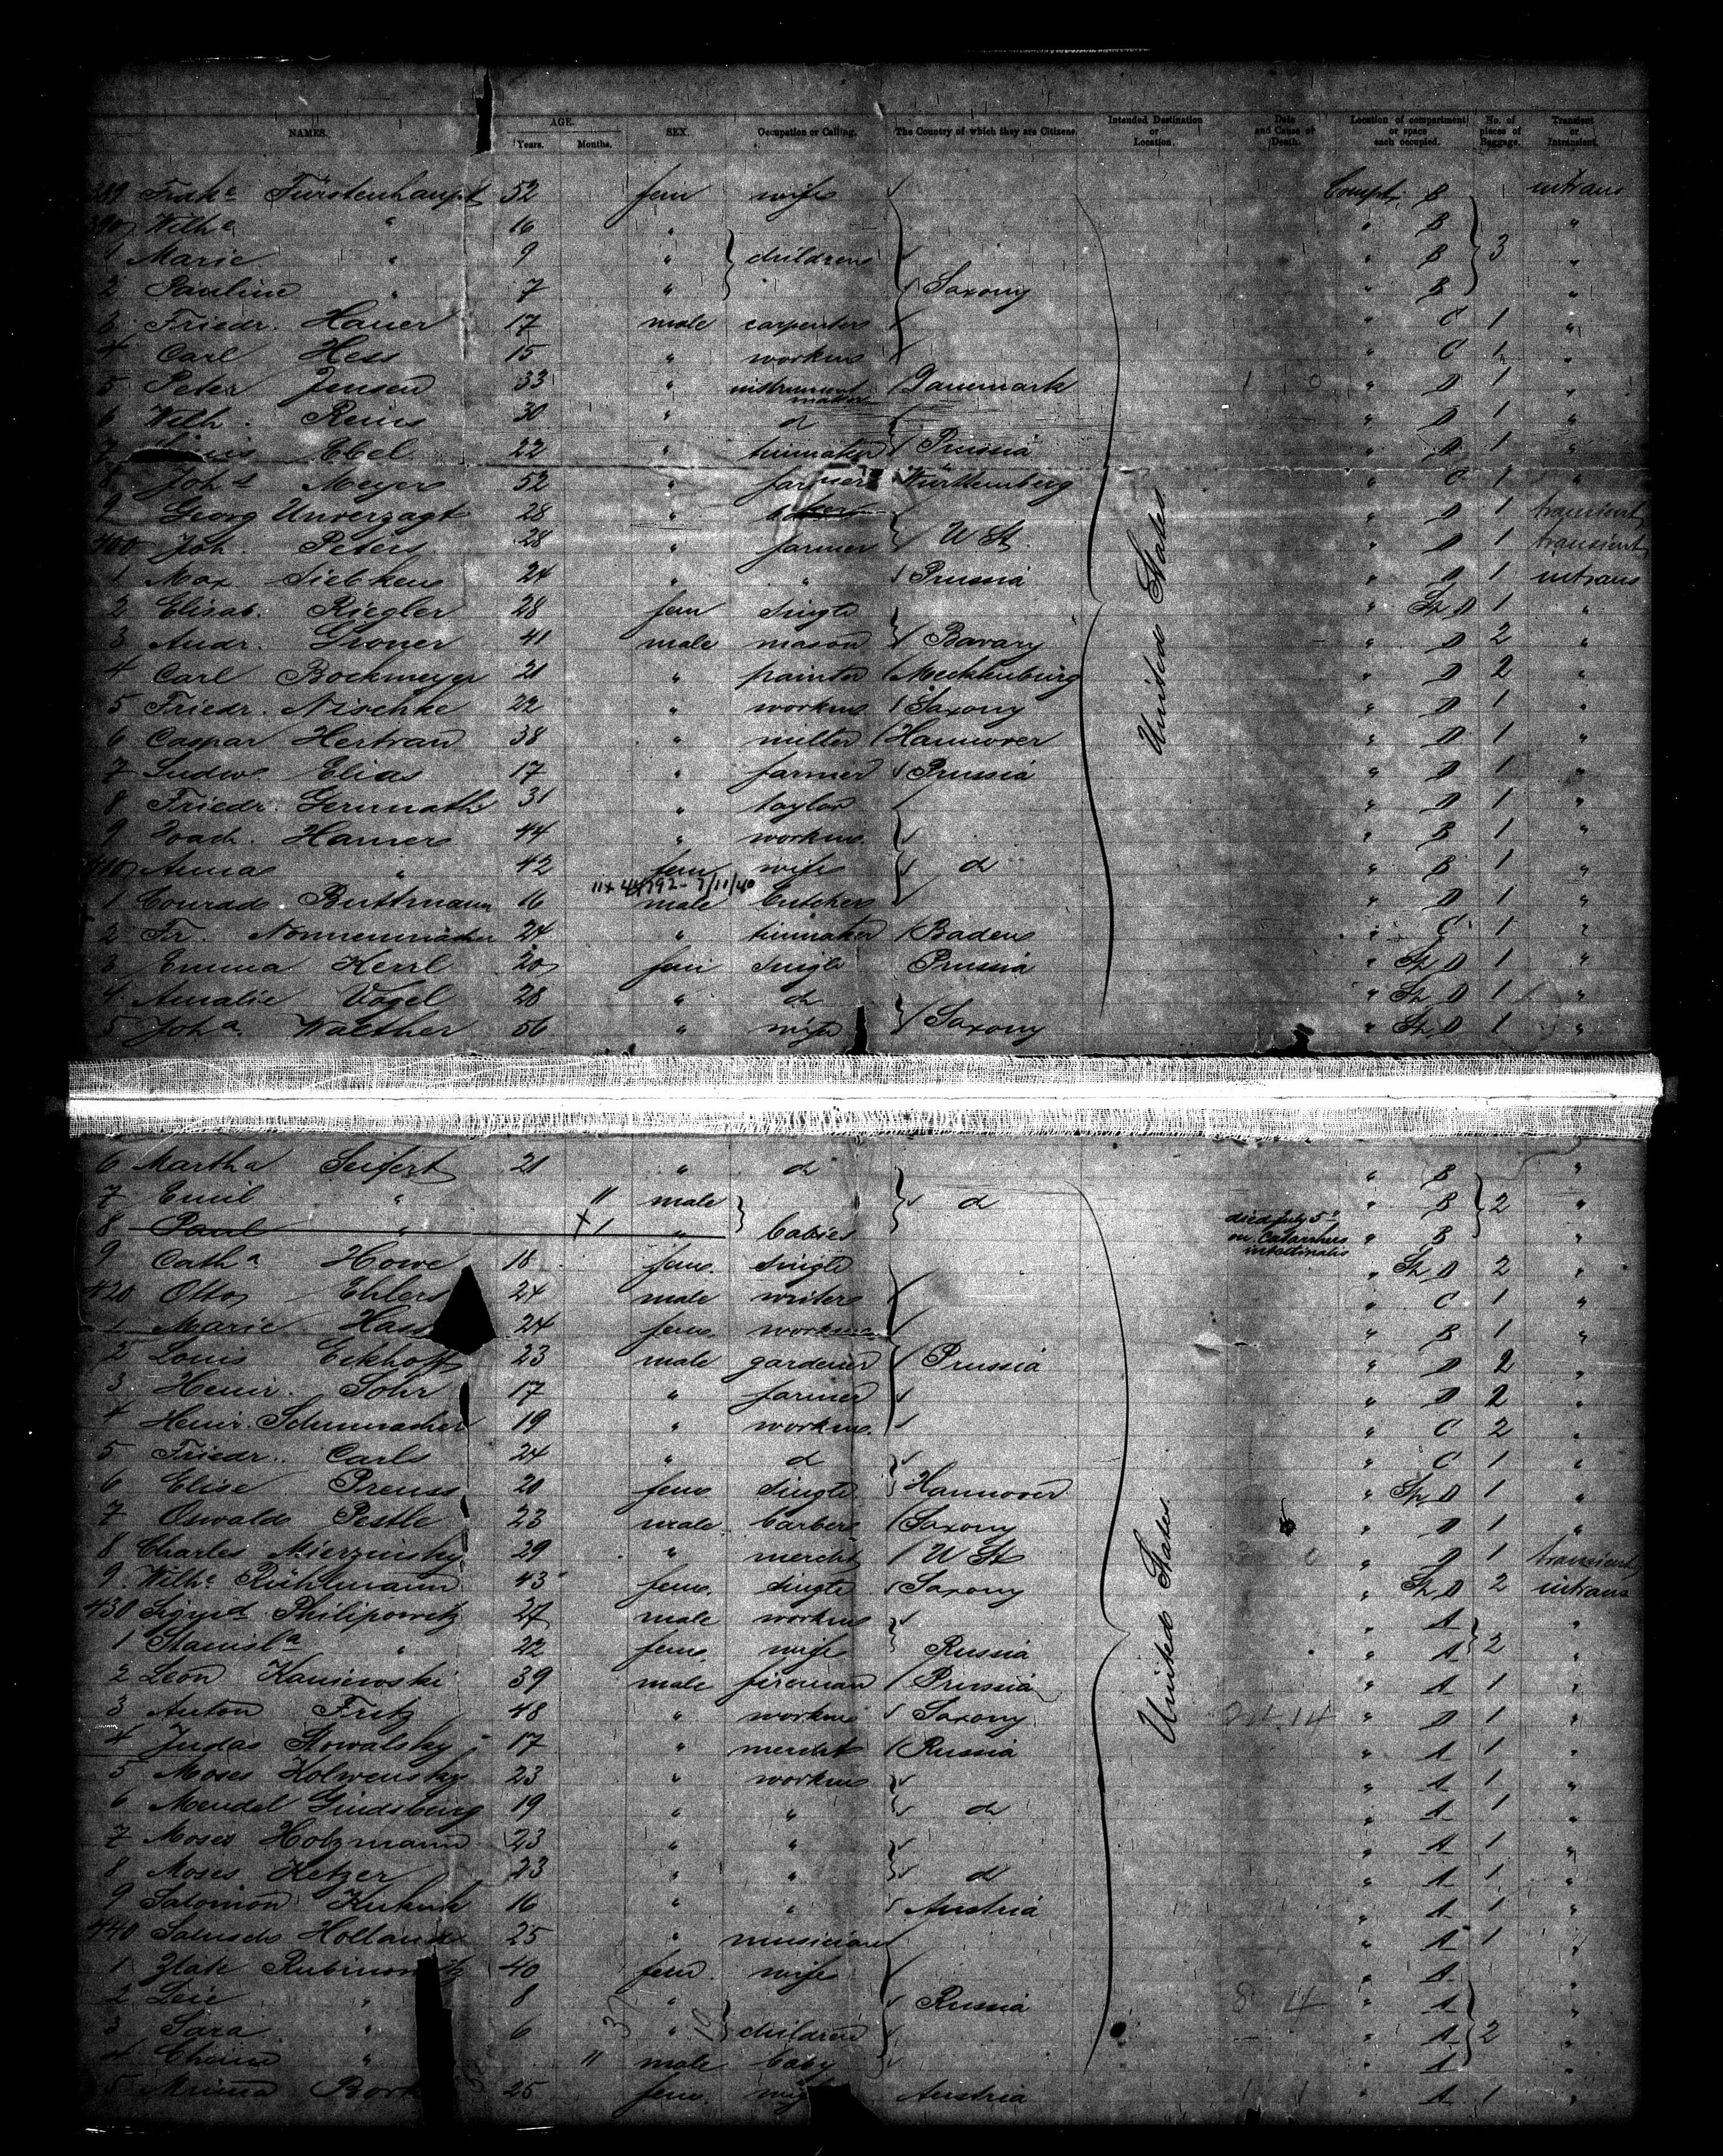 NAMES. AGE. Years. Months. SEX. Occupation or Calling. The Country of which they are Citizens. Intended Destination or Location. Date and Cause of Death. Location of compartment or space each occupied. No. of pieces of Baggage. Transient or Intransient.
389 Fürstenhaupt 52 fem wife Compt. B intrans
390 Wilhe " 16 " B "
1 Marie " 9 " children " B 3 "
2 Pauline " 7 " Saxony " B "
3 Friedr. Hauer 17 male carpenter " C 1 "
4 Carl Hess 15 " workm " C 1 "
5 Peter Jensen 33 " instrument maker Danemark " D 1 "
6 Wilh. Reins 30 " do " D 1 "
7 Ebel 22 " tinmaker Prussia " D 1 "
8 Johs Meyer 52 " farmer Württemberg " C 1 "
9 Georg Unverzagt 28 " " D 1 transient
400 Joh. Peters 28 " farmer U St. " D 1 transient
1 Max Siebkens 24 " " Prussia " D 1 intrans
2 Elisab. Riegler 28 fem single " D 1 "
3 Andr. Groner 41 male mason Bavary " D 2 "
4 Carl Bockmeyer 21 " painter Mecklenburg " D 2 "
5 Friedr. Nischke 22 " workm Saxony " D 1 "
6 Caspar Hertran 38 " miller Hannover " D 1 "
7 Ludw. Elias 17 " farmer Prussia " D 1 "
8 Friedr. Germuth 31 " taylor " D 1 "
9 Joach. Hamer 44 " workm. " B 1 "
410 Anna " 42 fem wife do " B 1 "
11x 44792- 7/11/40
1 Conrad Buttmann 16 male butcher " D 1 "
2 Fr. Nonnenmacher 24 " tinmaker Baden " C 1 "
3 Emma Kerrl 20 fem single Prussia " D 1 "
4 Amalie Vogel 28 " do " D 1 "
5 Joha. Walther 56 " wife Saxony " D 1 "
United States
6 Martha Seifert 21 " do " B "
7 Emil " 11 male do " B 2 "
8 Paul " 1 " babies died July 5th on Catarrhus intestinalis " B "
9 Catha Howe 18 fem. single " D 2 "
420 Otto Ehlers 24 male writer " C 1 "
1 Marie Hass 24 fem. workm " B 1 "
2 Louis Eckhoff 23 male gardener Prussia " D 2 "
3 Heinr. Sohr 17 " farmer " D 2 "
4 Heinr. Schumacher 19 " workm. " C 2 "
5 Friedr. Carls 24 " do " C 1 "
6 Elise Preuss 20 fem single Hannover " D 1 "
7 Oswald Pestle 23 male barber Saxony " D 1 "
8 Charles Mierzinsky 29 " mercht U St " D 1 transient
9 Wilhe Rühlmann 43 fem. single Saxony " D 2 intrans
430 Philipowitz 27 male workm " A "
1 Stanisla " 22 fem. wife Russia " A 2 "
2 Leon Kaniewski 39 male fireman Prussia " A 1 "
3 Anton Fritz 48 " workm Saxony " D 1 "
4 Judas Kowalsky 17 " mercht Russia " A 1 "
5 Moses Kolwensky 23 " workm " A 1 "
6 Mendel Gindsburg 19 " " do " A 1 "
7 Moses Holzmann 23 " " " A 1 "
8 Moses Ketzer 23 " " do " A 1 "
9 Salomon Kukuk 16 " " Austria " A 1 "
440 Holland 25 " musician " A 1 "
1 Zlate Rubinowitz 40 fem. wife " A "
2 Leie " 8 " Russia " A "
3 Sara " 6 " children " A 2 "
4 " 11 male baby " A "
5 25 fem. Austria " A 1 "
United States